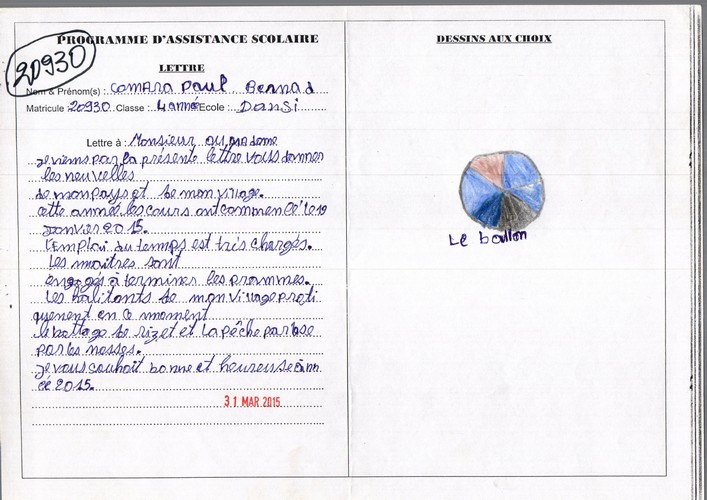 PROGRAMME D'ASSISTANCE SCOLAIRE
20930
LETTRE
Nom & Prénom(s) : Camara Paul Bernad
Matricule 20930 Classe : 4 année Ecole : Dansi
Lettre à : Monsieur ou madame
je viens par la présente lettre vous donner
les neuvelles
de mon pays et de mon village.
cette année les cours ont commencé le 19
Janvier 2015.
l'Emploi du temps est très chargés.
Les maitres sont
engagés à terminer les prommes.
Les habitants de mon village proti
quenent en ce moment
le battage de riz et et la pêche par
par les nosses.
je vous souhait bonne et heureuse ann
cé 2015.
31 MAR. 2015
DESSINS AUX CHOIX
Le ballon